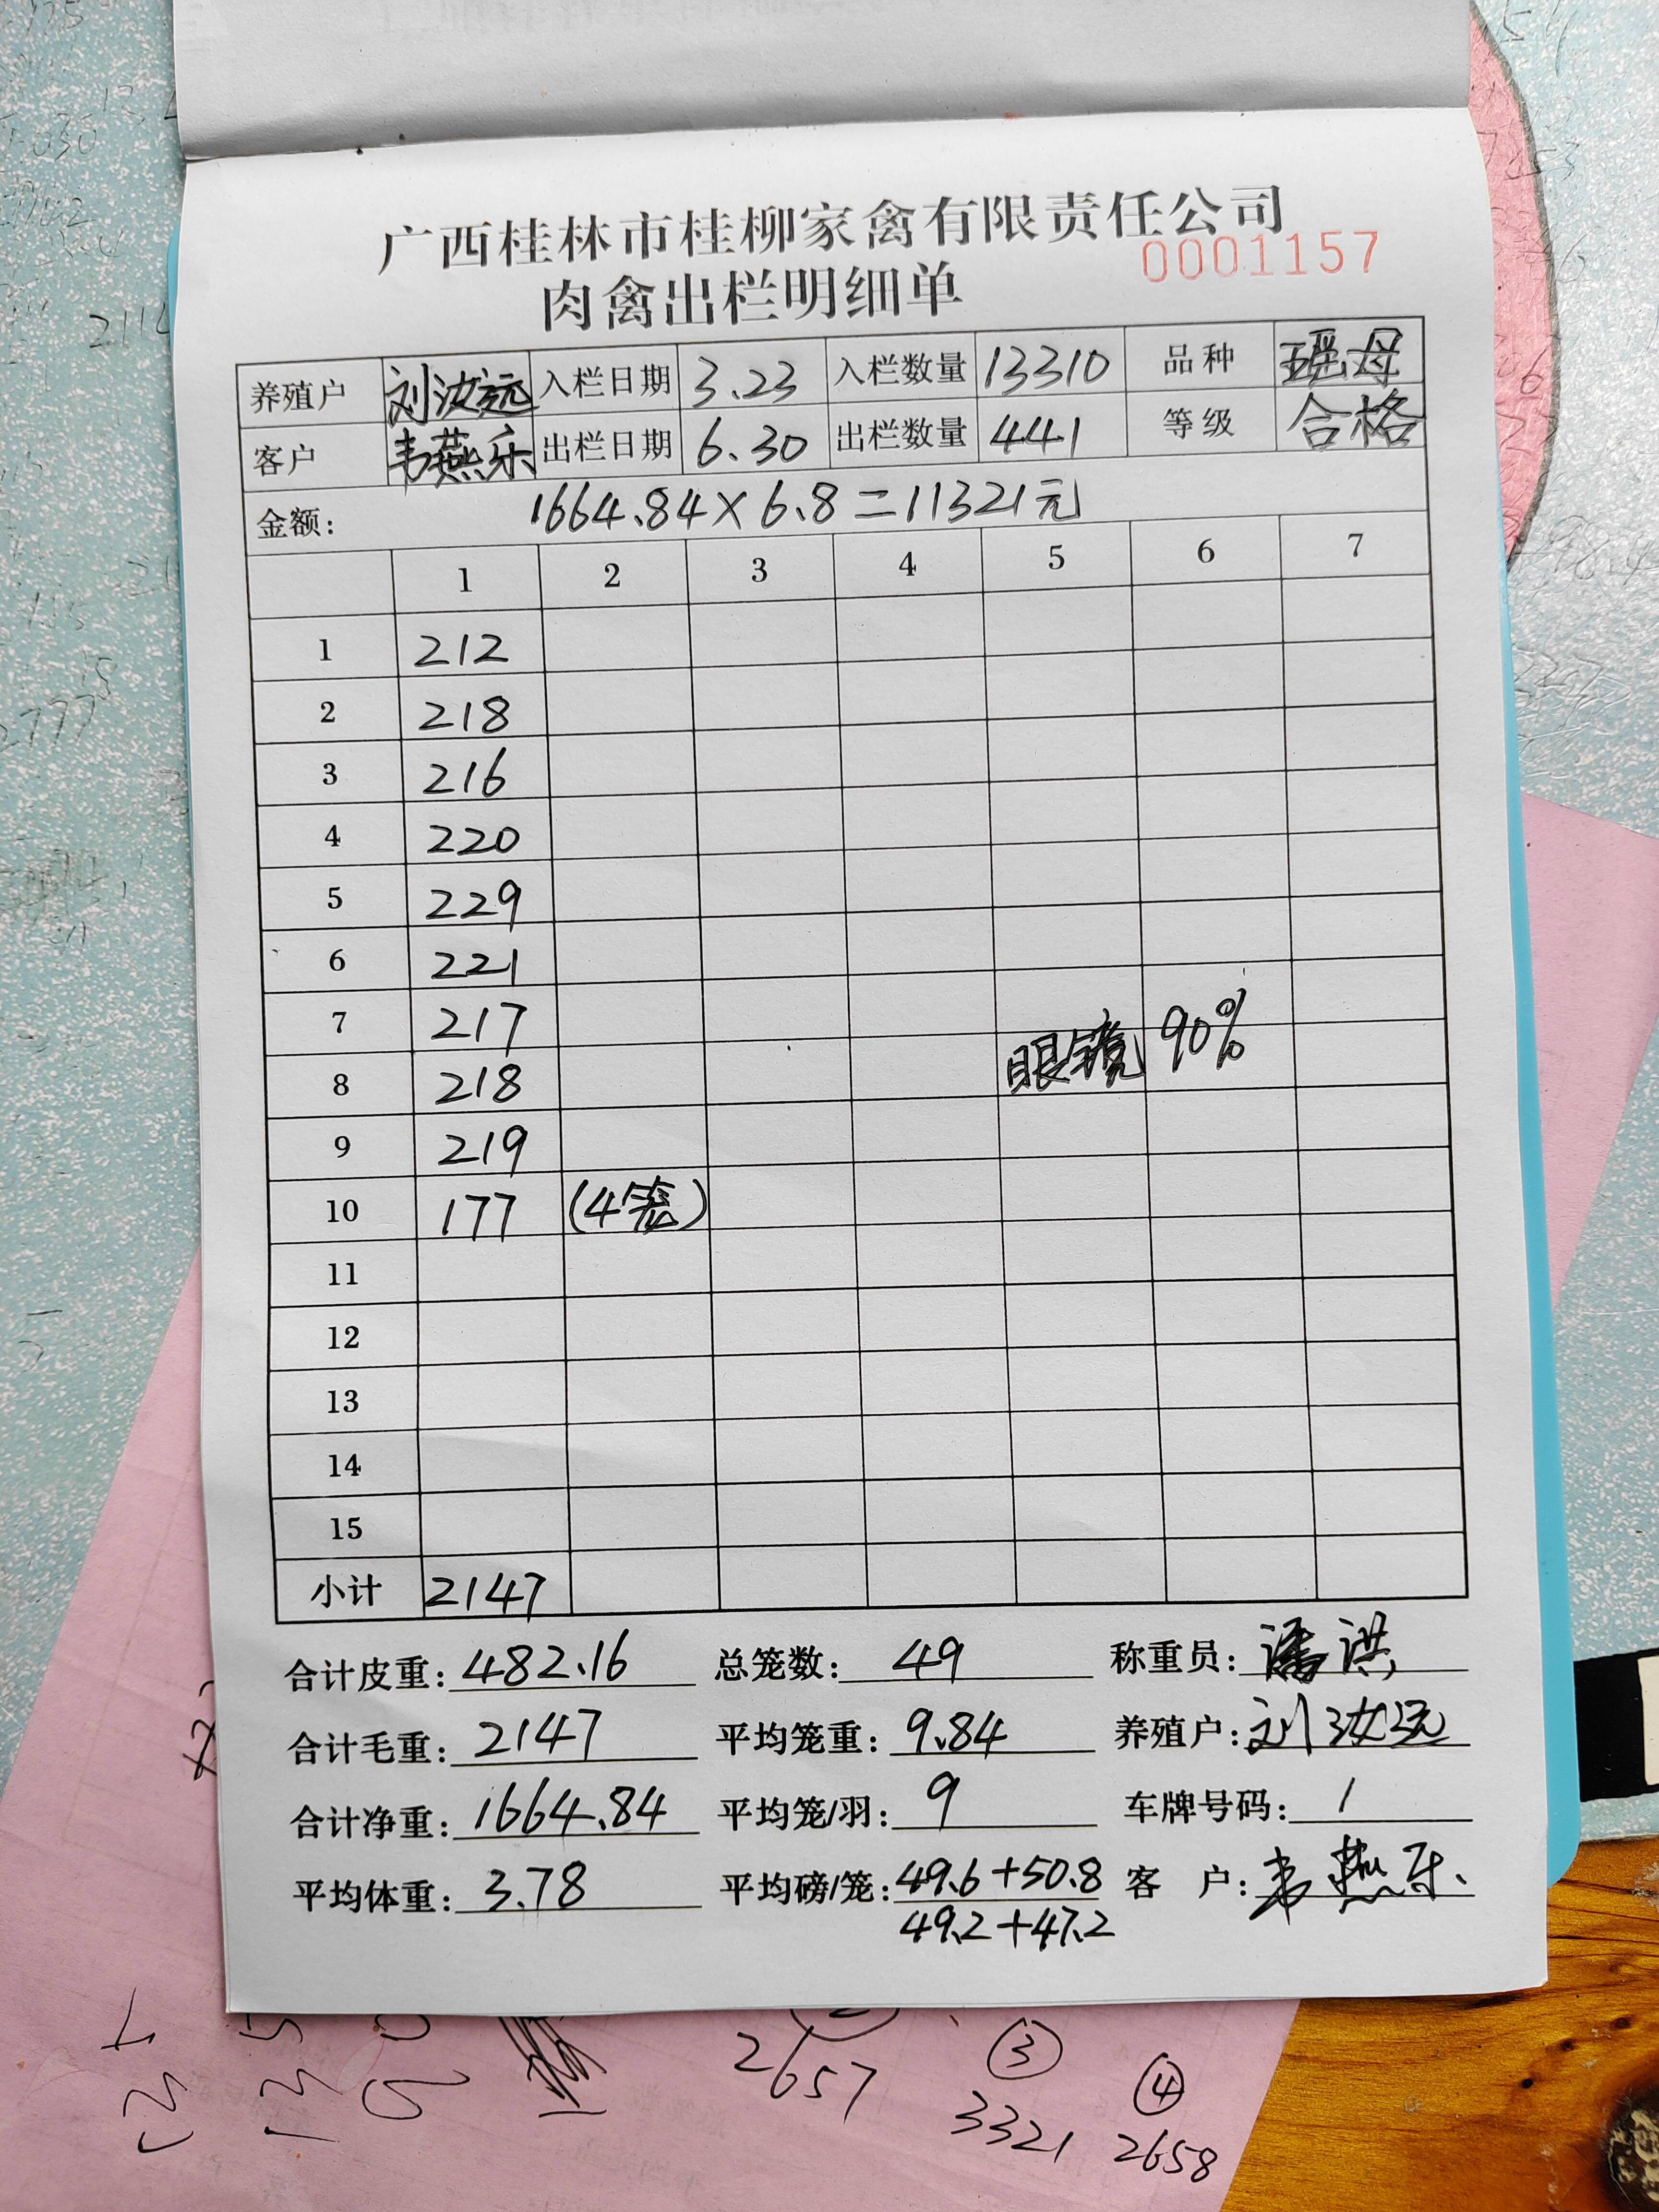 广西桂林市桂柳家禽有限责任公司
肉禽出栏明细单 0001157
养殖户 刘汝远 入栏日期 3.23 入栏数量 13310 品种 瑶母
客户 韦燕乐 出栏日期 6.30 出栏数量 441 等级 合格
金额: 1664.84×6.8=11321元
1 2 3 4 5 6 7
1 212
2 218
3 216
4 220
5 229
6 221
7 217
眼镜 90%
8 218
9 219
10 177 (4笼)
11
12
13
14
15
小计 2147
合计皮重: 482.16 总笼数: 49 称重员: 潘洪
合计毛重: 2147 平均笼重: 9.84 养殖户: 刘汝远
合计净重: 1664.84 平均笼/羽: 9 车牌号码: 1
平均体重: 3.78 平均磅/笼: 49.6+50.8 客 户: 韦燕乐
49.2+47.2
2657 ③ ④
3321 2658